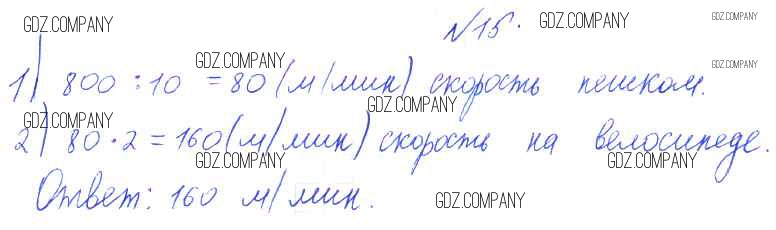 №15.
1) 800 : 10 = 80 (м/мин) скорость пешком.
2) 80 · 2 = 160 (м/мин) скорость на велосипеде.
Ответ: 160 м/мин.
GDZ.COMPANY
GDZ.COMPANY
GDZ.COMPANY
GDZ.COMPANY
GDZ.COMPANY
GDZ.COMPANY
GDZ.COMPANY
GDZ.COMPANY
GDZ.COMPANY
GDZ.COMPANY
GDZ.COMPANY